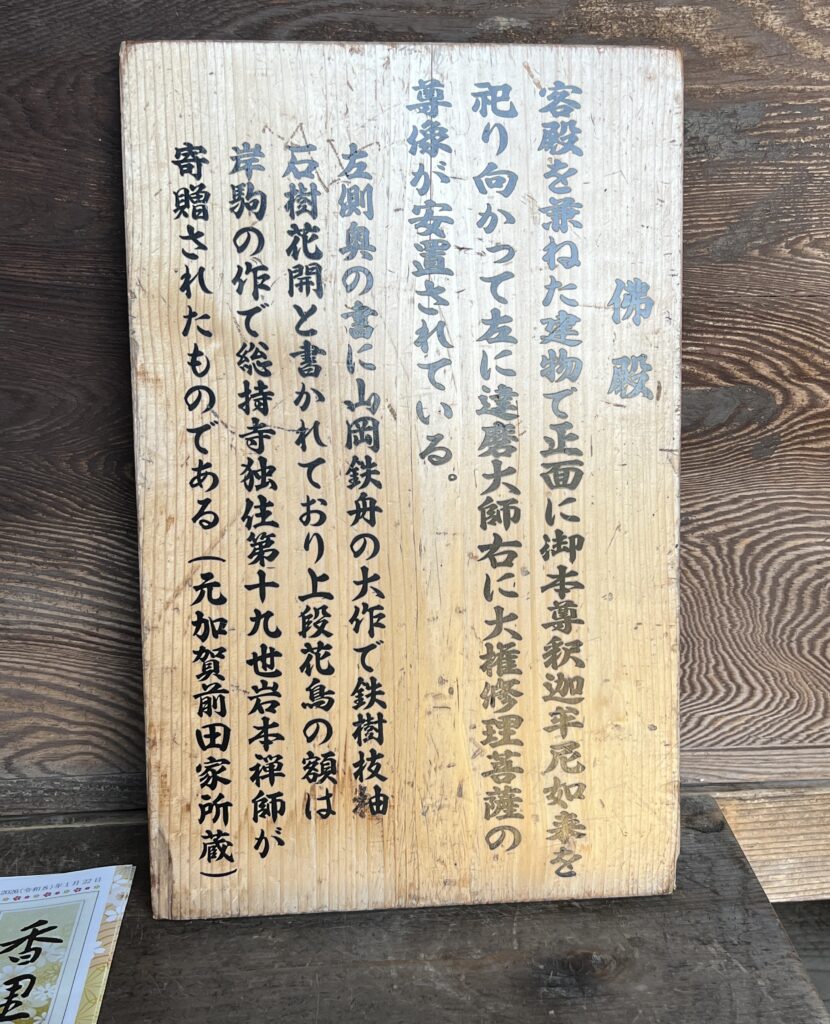 佛殿
客殿を兼ねた建物で正面に御本尊釈迦牟尼如来を
祀り向かって左に達磨大師右に大権修理菩薩の
尊像が安置されている。
左側奥の書に山岡鉄舟の大作で鉄樹枝袖
石樹花開と書かれており上段花鳥の額は
岸駒の作で総持寺独住第十九世岩本禅師が
寄贈されたものである(元加賀前田家所蔵)
2026(令和8)年1月22日
香里